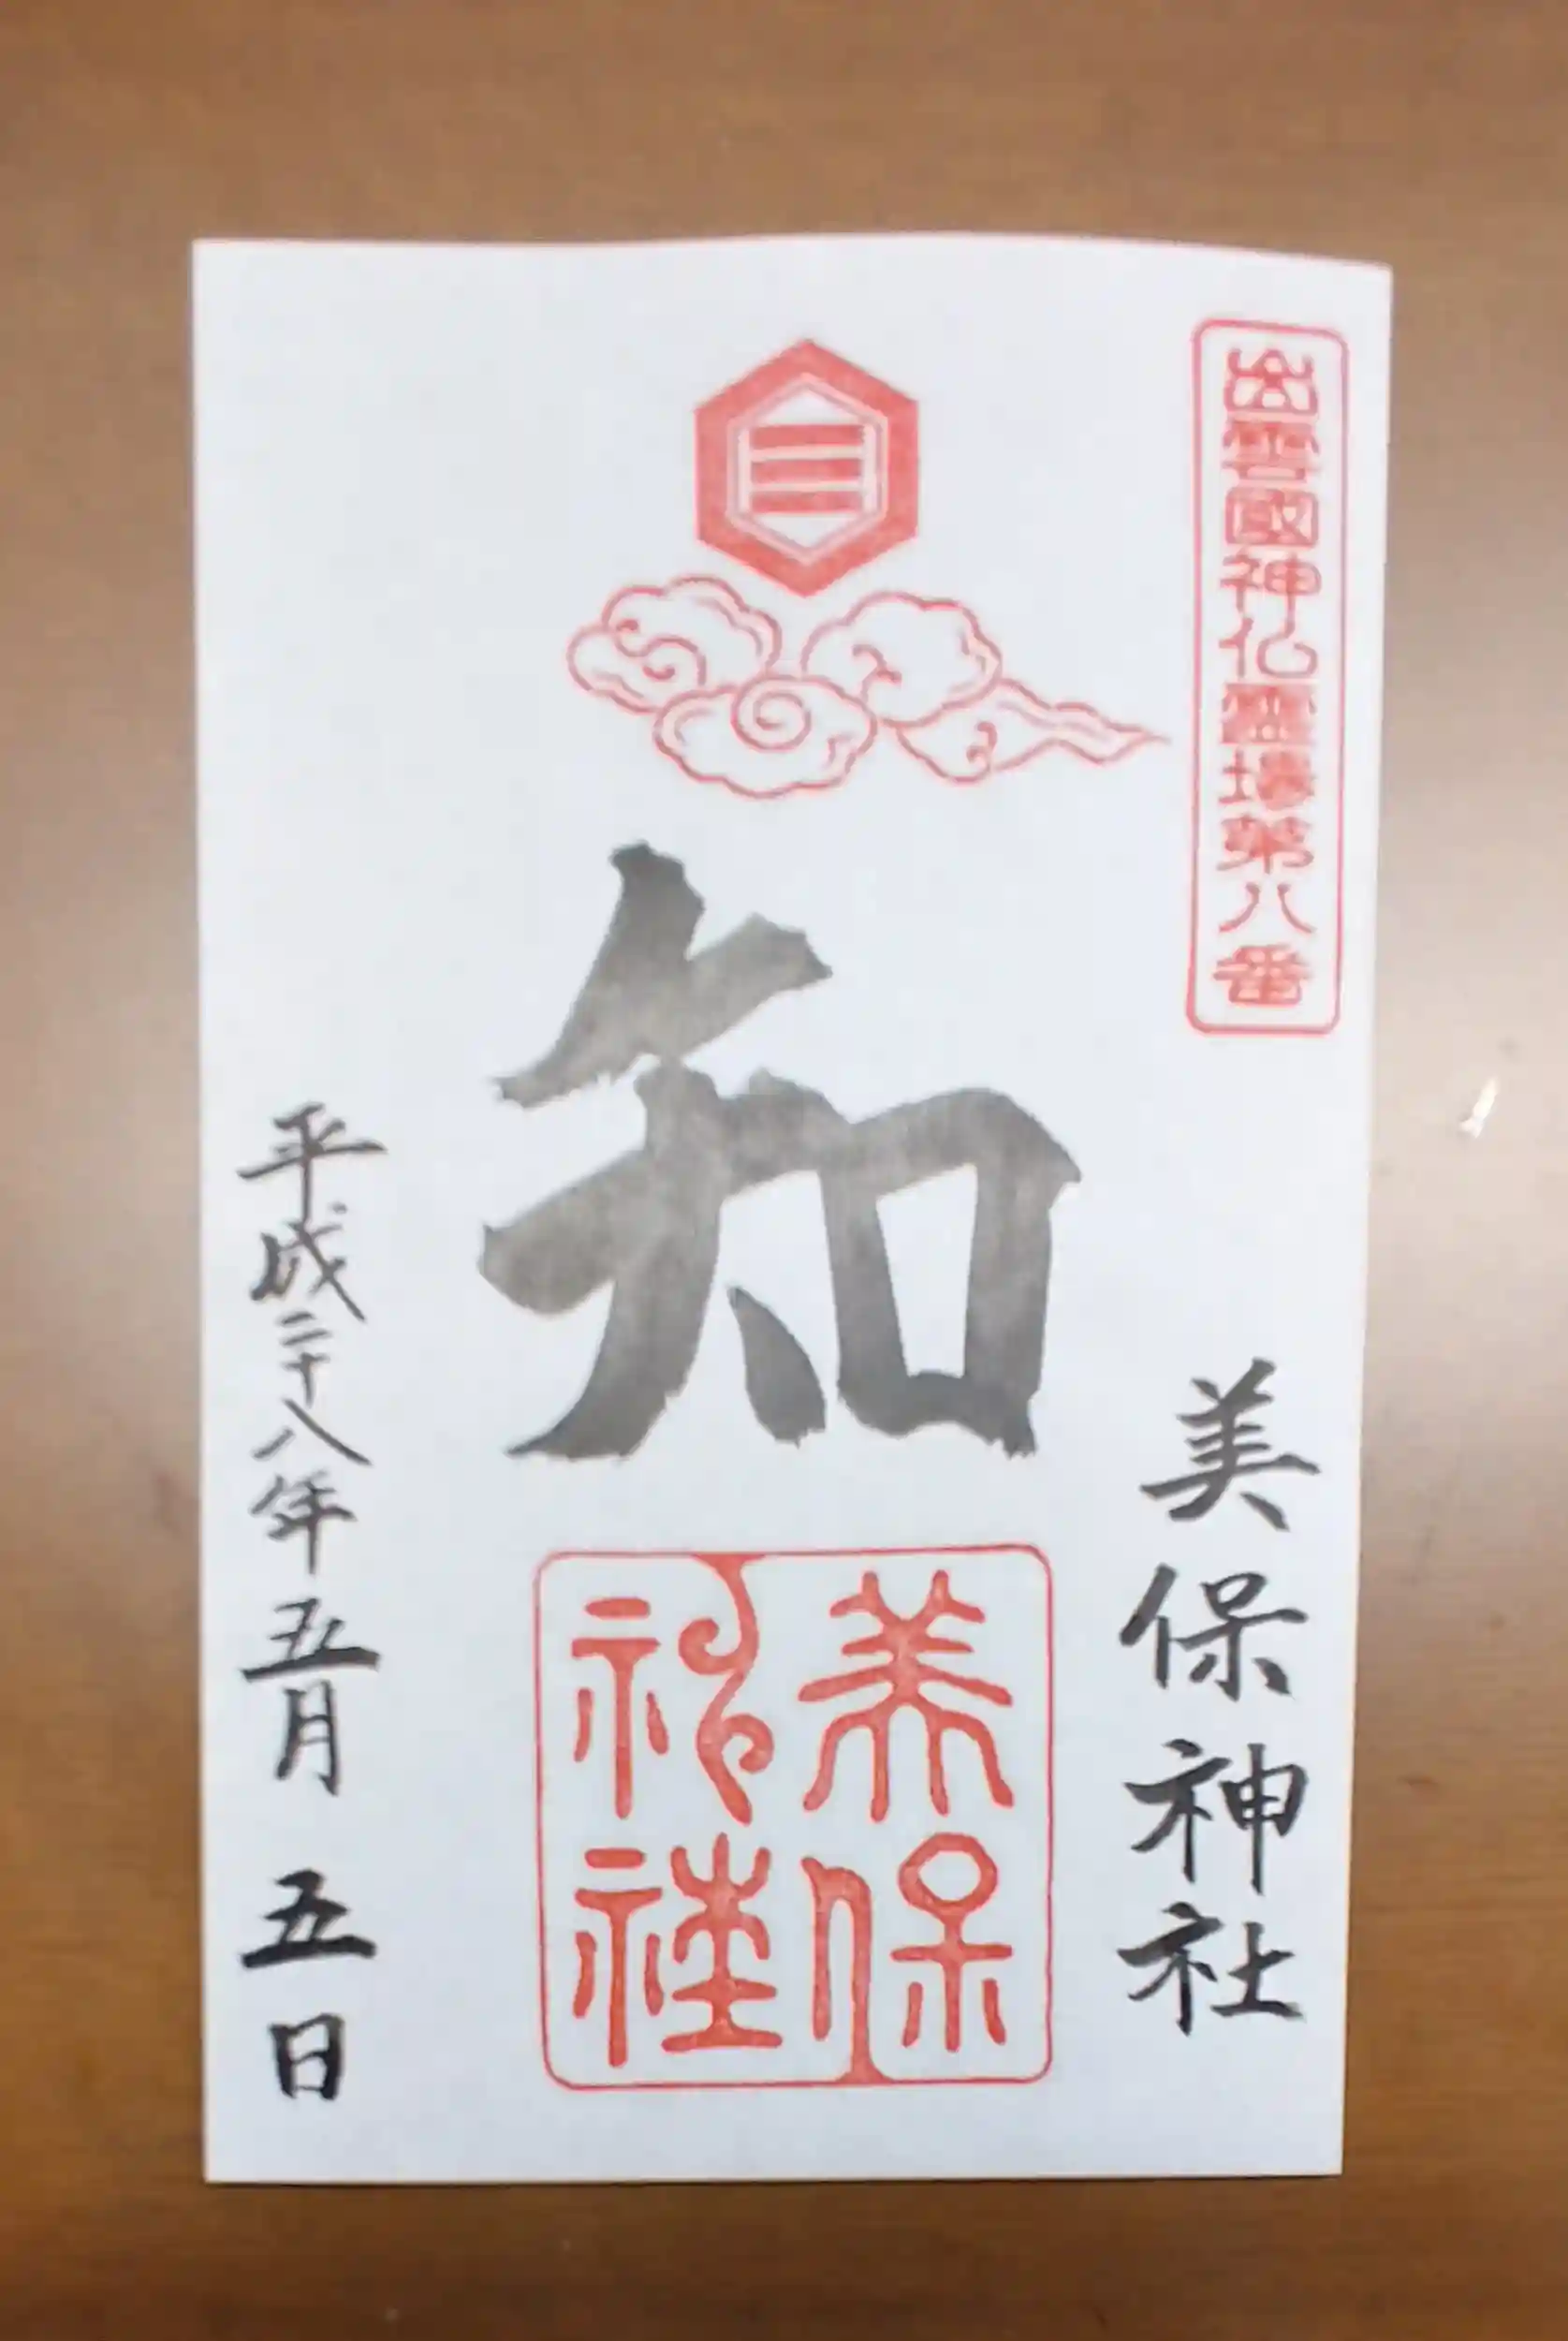 出雲國神仏霊場第八番
美保神社
知
美保
神社
平成二十八年五月五日